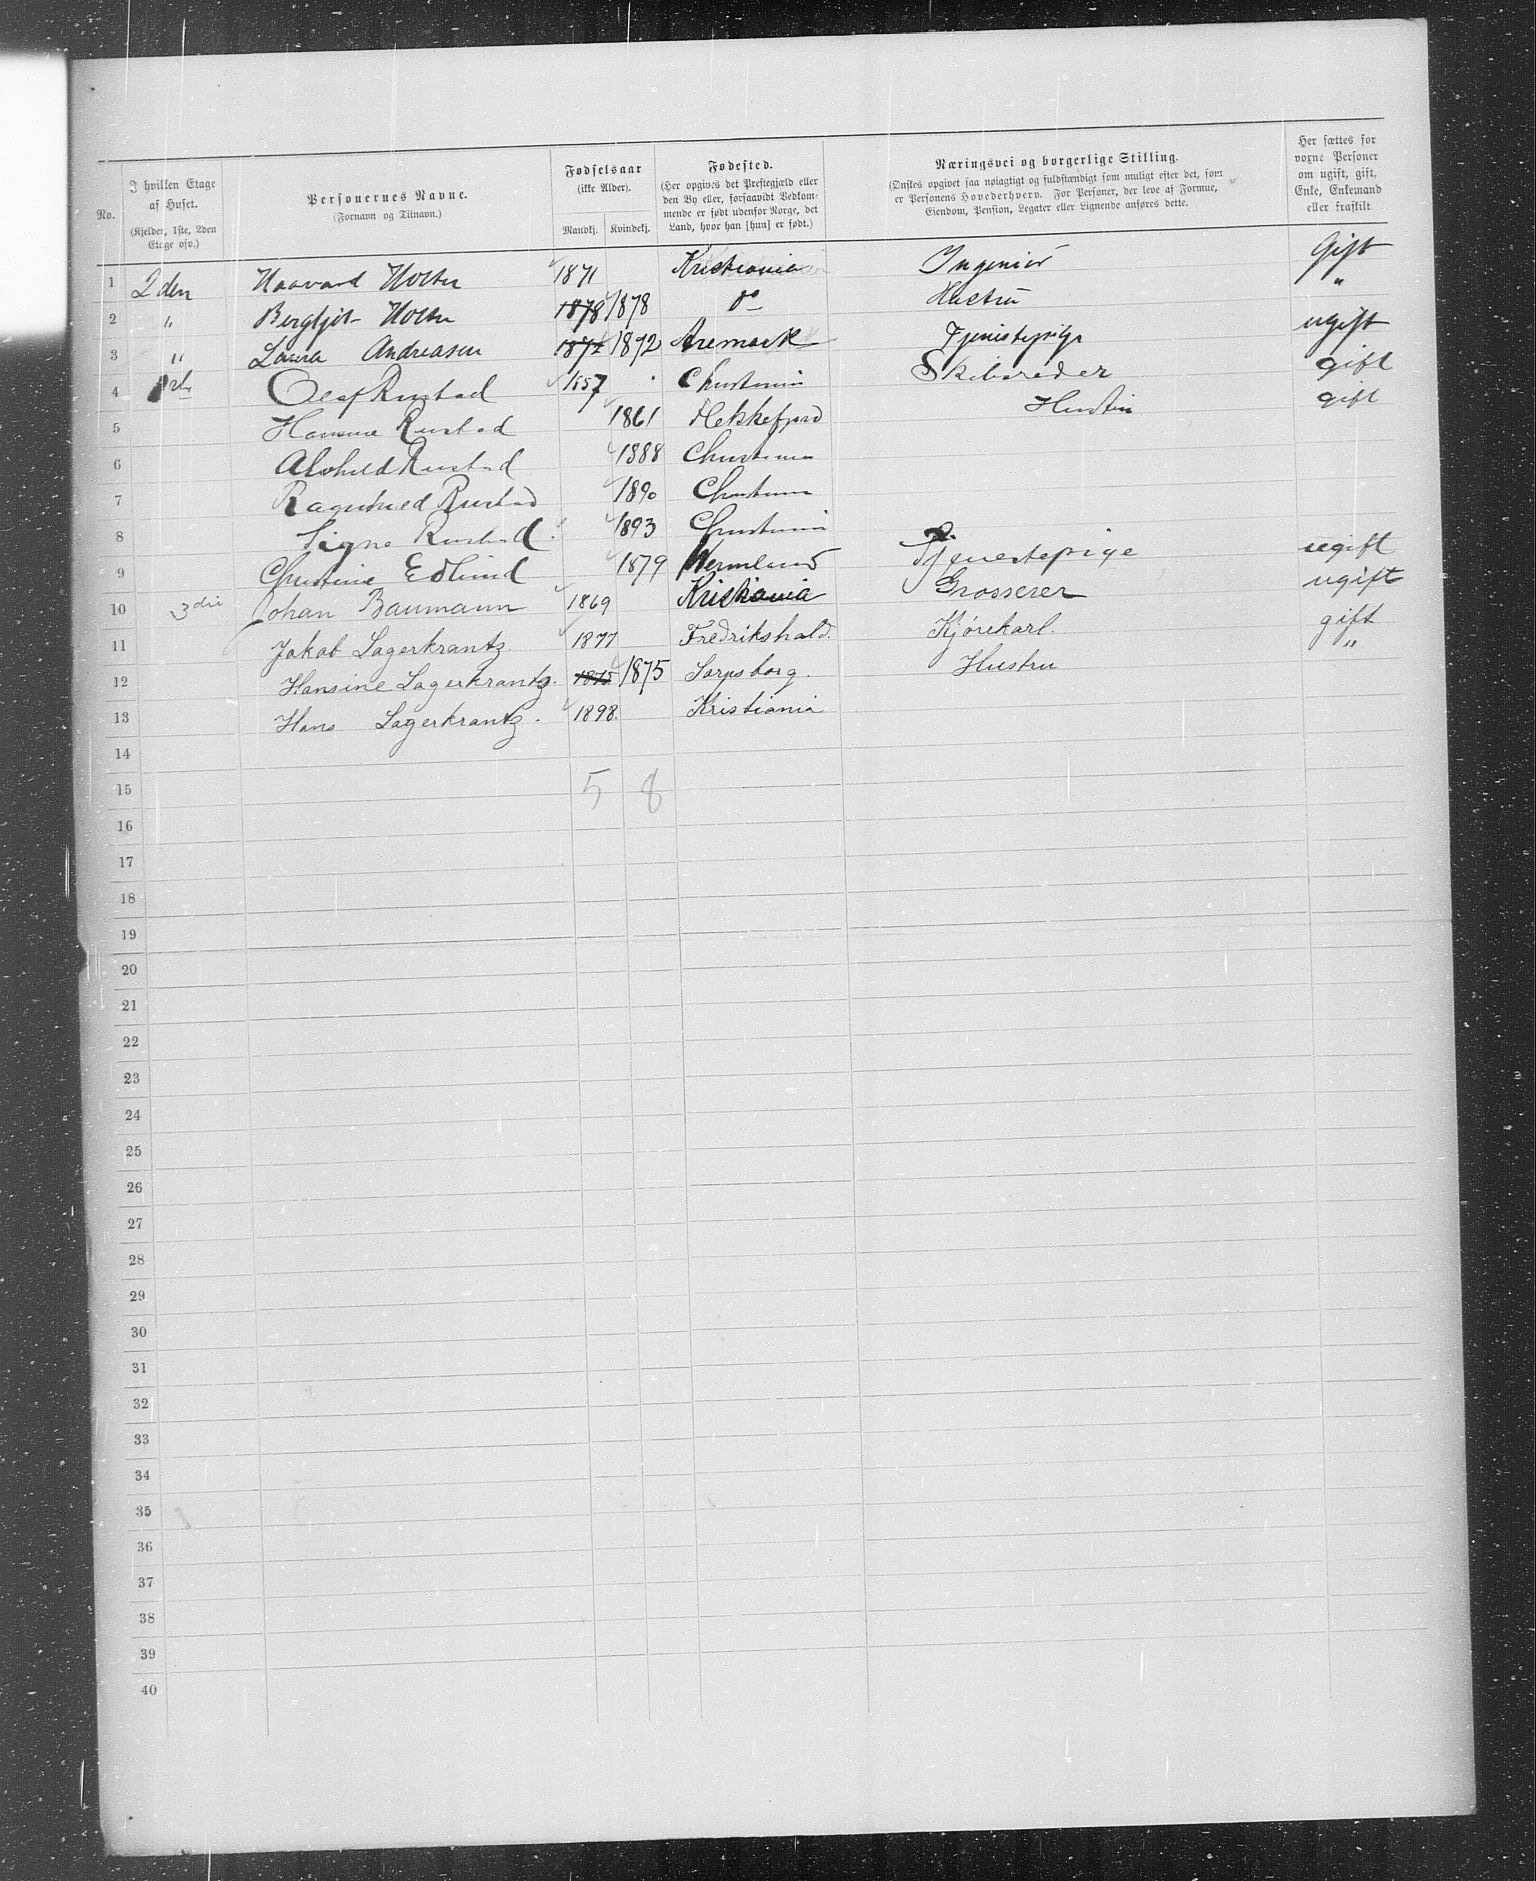 No.
I hvilken Etage af Huset. (Kjelder, 1ste, 2den Etage osv.)
Personernes Navne. (Fornavn og Tilnavn.)
Fødselsaar (ikke Alder). Mandkj. Kvindekj.
Fødested. (Her opgives det Prestegjæld eller den By eller, forsaavidt Vedkommende er født udenfor Norge, det Land, hvor han [hun] er født.)
Næringsvei og borgerlige Stilling. (Ønskes opgivet saa nøiagtigt og fuldstændigt som muligt efter det, som er Personens Hovederhverv. For Personer, der leve af Formue, Eiendom, Pension, Legater eller Lignende anføres dette.
Her sættes for voxne Personer om ugift, gift, Enke, Enkemand eller fraskilt
1 2den Haavard Holter 1871 Kristiania Ingeniør Gift
2 " Bergljot Holter 1878 1878 do Hustru "
3 " Laura Andreasen 1872 1892 Aremark Tjenestepige ugift
4 1ste Olaf Rustad 1857 Christiania Skibsreder gift
5 Hanna Rustad 1861 Hekkefjord Hustru gift
6 Alvhild Rustad 1888 Christiania
7 Ragnhild Rustad 1890 Christiania
8 Signe Rustad 1893 Christiania
9 Christine Edlund 1879 Wermland Tjenestepige ugift
10 3die Johan Baumann 1869 Kristiania Grosserer ugift
11 Jakob Lagerkrantz 1877 Fredrikshald. Kjørekarl. gift
12 Hansine Lagerkrantz. 1875 1875 Sarpsborg. Hustru "
13 Hans Lagerkrantz. 1898. Kristiania
14
15 5 8
16
17
18
19
20
21
22
23
24
25
26
27
28
29
30
31
32
33
34
35
36
37
38
39
40